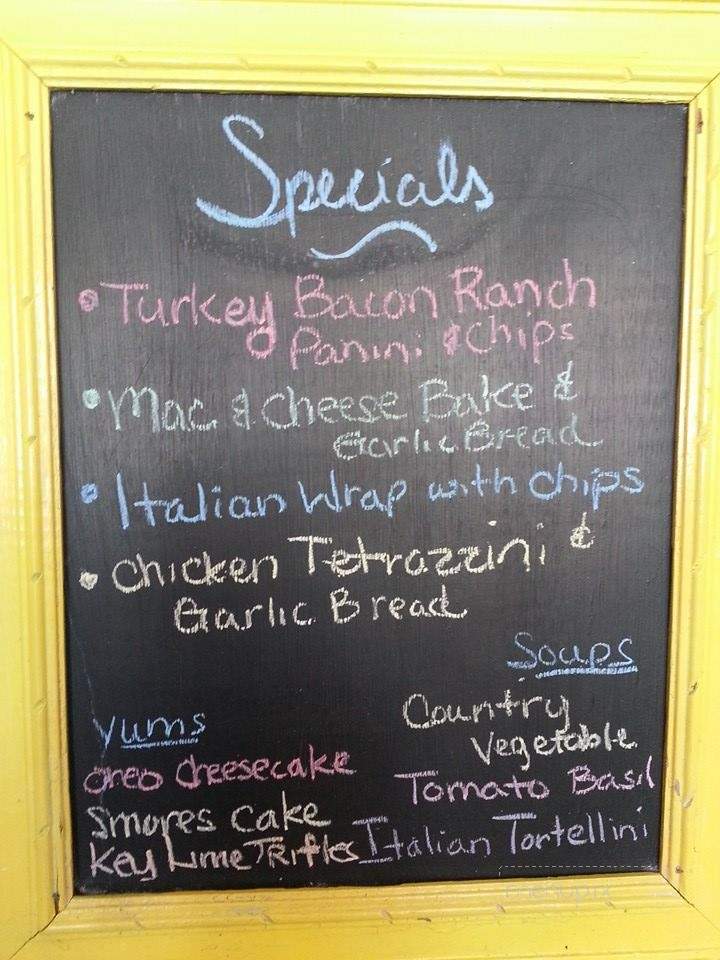 Specials
• Turkey Bacon Ranch
Panini & Chips
• Mac & Cheese Bake &
Garlic Bread
• Italian Wrap with Chips
• Chicken Tetrazzini &
Garlic Bread
Soups
Country
Vegetable
Tomato Basil
Italian Tortellini
Yums
Oreo Cheesecake
Smores Cake
Key Lime Trifles